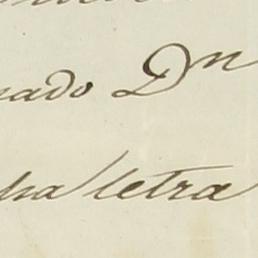 nado Dn
ha letra